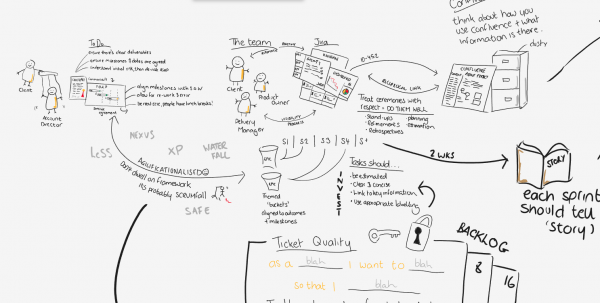 To Do
ensure there's clear deliverables
ensure milestones & dates are agreed
understand usual wth, then double it
align milestones with SOW
allow for re-work & error
be realistic, people have lunch breaks!
Client
Account
Director
agreement
The team
Client
Product
Owner
Delivery
Manager
Jira
10-452
RECIPROCAL LINK
Treat ceremonies with
respect + DO THEM WELL
· Stand-ups
· Refinements
· Retrospectives
planning
estimation
think about how you
use Confluence + what
information is there.
dusty
CONFLUENCE
NEXUS
LeSS
XP
WATER
FALL
AGILIFICATIONALISED
Don't dwell on framework
It's probably scrumfall
SAFE
S1
S2
S3
S4
EPIC
EPIC
Themed
'buckets'
aligned to outcomes
& milestones
Tasks should...
INVEST
· be estimated
· Clear & concise
· Link to key information
· Use appropriate labelling
2 WKS
STORY
each sprint
should tell
'story')
BACKLOG
8
16
Ticket Quality
as a blah I want to blah
so that I blah